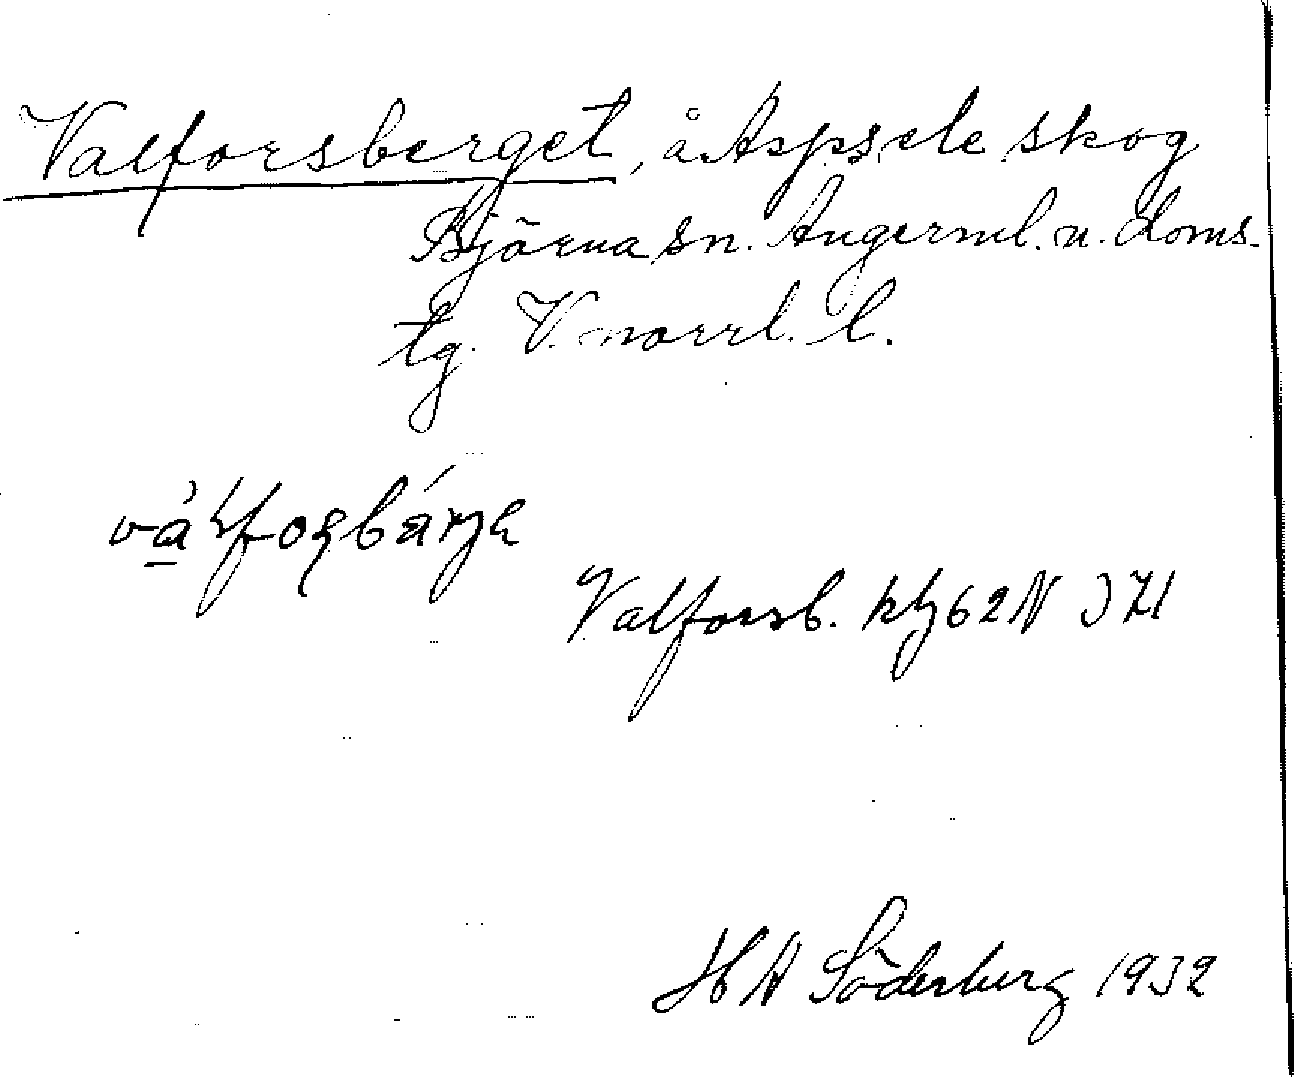 Valforsberget, å Aspsele skog
Björna sn. Ångerml. n. doms.
tg. V. norrl. l.
Valforsb. kbl 62 N
H A Söderberg 1932